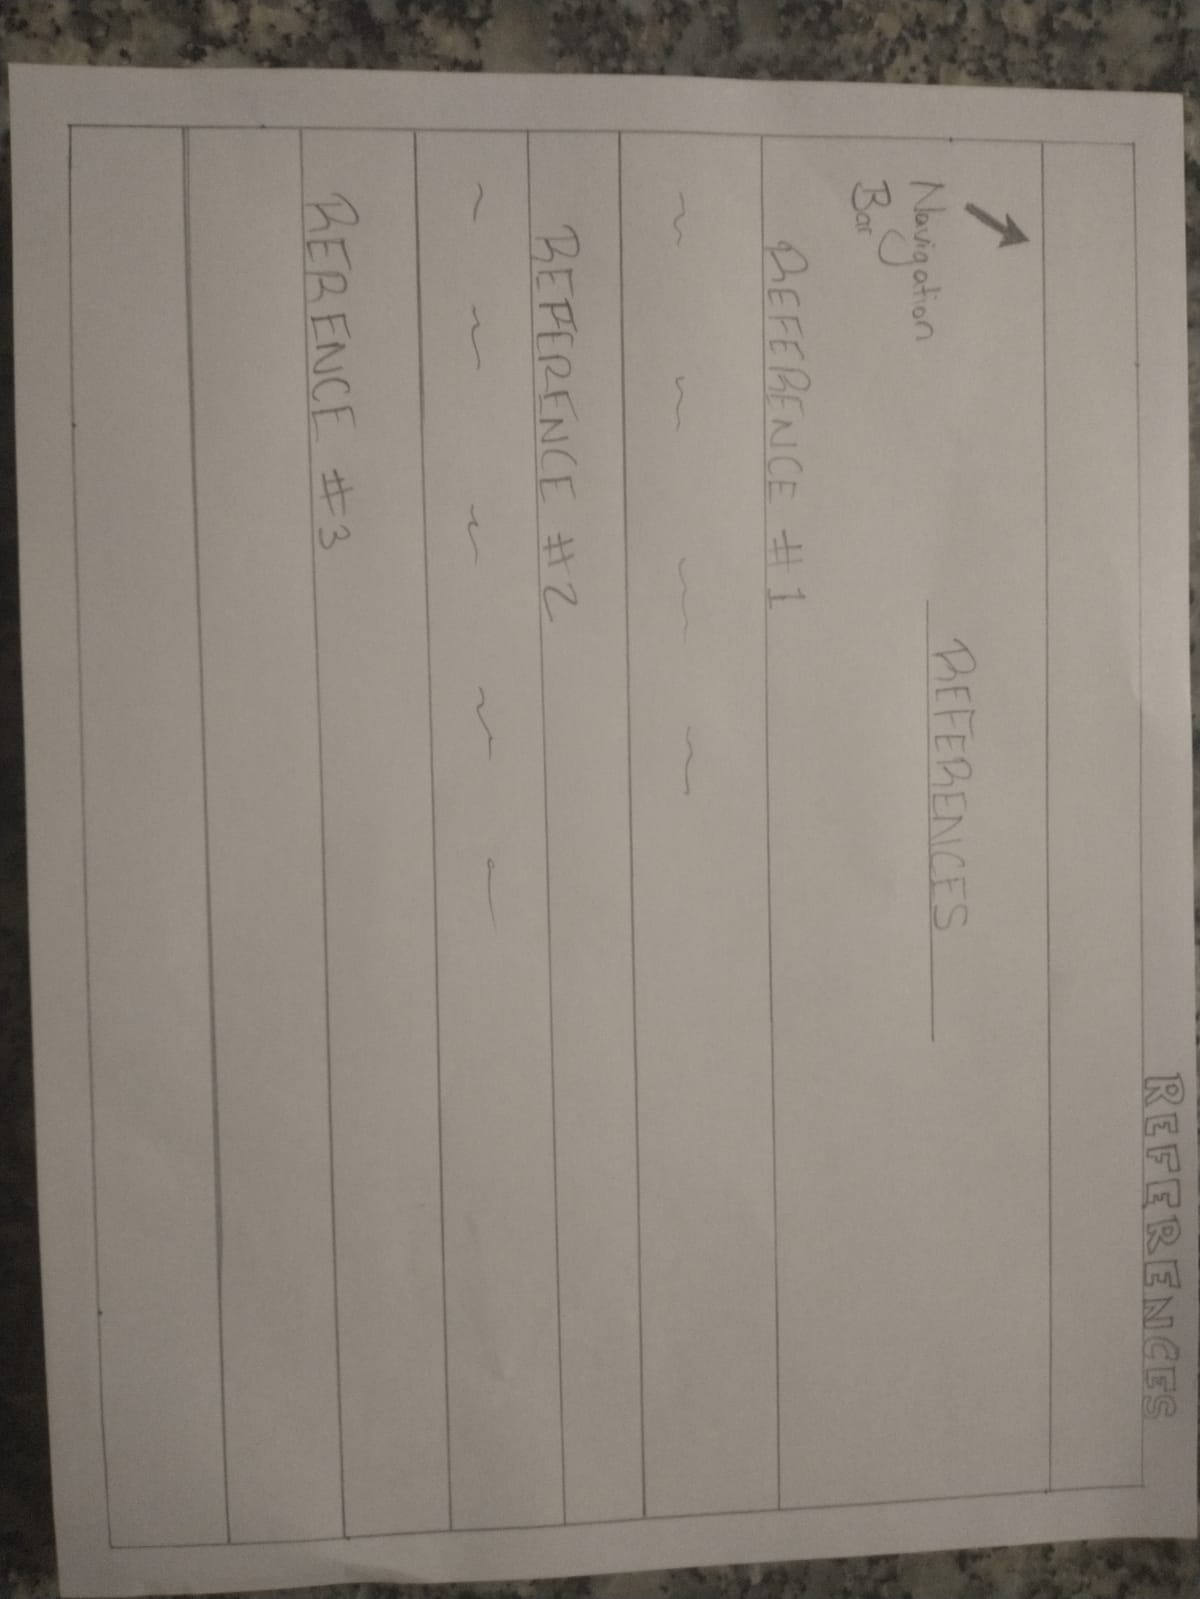 REFERENCES
Navigation
Bar
REFERENCES
REFERENCE #1
REFERENCE #2
RERENCE #3